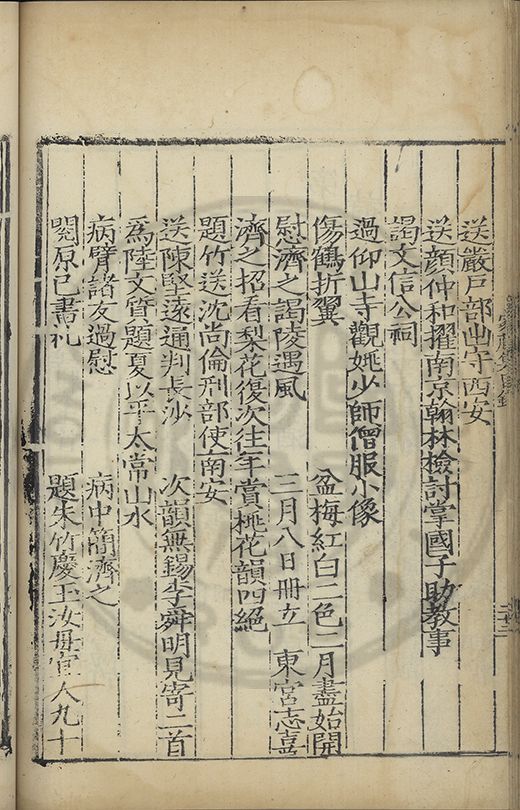 送嚴戶部出守西安
送顏仲和擢南京翰林檢討掌國子助教事
謁文信公祠
過仰山寺觀姚少師僧服小像
傷鶴折翼　盆梅紅白二色二月盡始開
慰濟之謁陵遇風　三月八日冊立　東宮志喜
濟之招看梨花復次往年賞桃花韻四絕
題竹送沈尚倫刑部使南安
送陳堅遠通判長沙　次韻無錫李舜明見寄二首
爲陸文質題夏以平太常山水
病臂諸友過慰　病中簡濟之
閱原巳書札　題朱竹慶玉汝母宜人九十